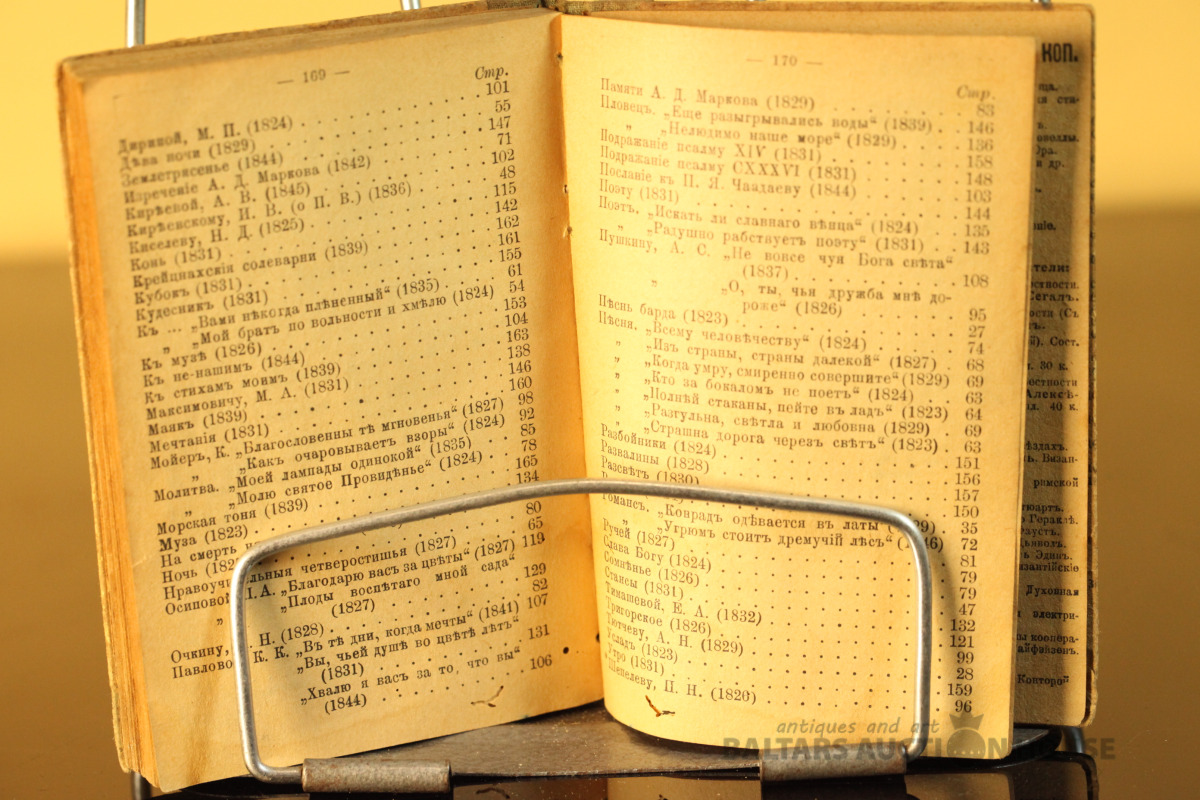 — 169 —
Стр.
Дириной, М. П. (1824) 101
Дѣва ночи (1829) 55
Землетрясенье (1844) 147
Изреченіе А. Д. Маркова (1842) 71
Кирѣевой, А. В. (1845) 102
Кирѣевскому, И. В. (о П. В.) (1836) 48
Киселеву, Н. Д. (1825) 115
Конь (1831) 142
Крейцнахскія солеварни (1839) 162
Кубокъ (1831) 161
Кудесникъ (1831) 155
Къ ... „Вами нѣкогда плѣненный“ (1835) 61
„ „Мой братъ по вольности и хмѣлю (1824) 54
Къ музѣ (1826) 153
Къ не-нашимъ (1844) 104
Къ стихамъ моимъ (1839) 163
Максимовичу, М. А. (1831) 138
Маякъ (1839) 146
Мечтанія (1831) 160
Мойеръ, К. „Благословенны тѣ мгновенья“ (1827) 98
„ „Какъ очаровываетъ взоры“ (1824) 92
Молитва. „Моей лампады одинокой“ (1835) 85
„ „Молю святое Провидѣнье“ (1824) 78
Морская тоня (1839) 165
Муза (1823) 134
На смерть
Ночь 80
Нравоучительныя четверостишья (1827) 65
Осиповой, П. А. „Благодарю васъ за цвѣты“ (1827) 119
„ „Плоды воспѣтаго мной сада“
(1827) 129
Очкину, Н. (1828) 82
Павловой, К. К. „Въ тѣ дни, когда мечты“ (1841) 107
„Вы, чьей душѣ во цвѣтѣ лѣтъ“
(1831) 131
„Хвалю я васъ за то, что вы“
(1844) 106
— 170 —
Стр.
Памяти А. Д. Маркова (1829) 83
Пловецъ. „Еще разыгрывались воды“ (1839) 146
„ „Нелюдимо наше море“ (1829) 136
Подражаніе псалму XIV (1831) 158
Подражаніе псалму CXXXVI (1831) 148
Посланіе къ П. Я. Чаадаеву (1844) 103
Поэту (1831) 144
Поэтъ. „Искать ли славнаго вѣнца“ (1824) 135
„ „Радушно рабствуетъ поэту“ (1831) 143
Пушкину, А. С. „Не вовсе чуя Бога свѣта“
(1837) 108
„ „О, ты, чья дружба мнѣ до-
роже“ (1826) 95
Пѣснь барда (1823) 27
Пѣсня. „Всему человѣчеству“ (1824) 74
„ „Изъ страны, страны далекой“ (1827) 68
„ „Когда умру, смиренно совершите“ (1829) 69
„ „Кто за бокаломъ не поетъ“ (1824) 63
„ „Полнѣй стаканы, пейте въ ладъ“ (1823) 64
„ „Разгульна, свѣтла и любовна (1829) 69
„ „Страшна дорога черезъ свѣтъ“ (1823) 63
Разбойники (1824) 151
Развалины (1828) 156
Разсвѣтъ (1830) 157
150
Романсъ. „Конрадъ одѣвается въ латы 35
„ „Угрюмъ стоитъ дремучій лѣсъ“ 72
Ручей (1827) 81
Слава Богу (1824) 79
Сомнѣнье (1826) 79
Стансы (1831) 47
Тимашевой, Е. А. (1832) 132
Тригорское (1826) 121
Тютчеву, А. Н. (1829) 99
Усладъ (1823) 28
Утро (1831) 159
Шепелеву, П. Н. (1826) 96
КОП.
и др.
Сегалъ.
Сост.
30 к.
40 к.
римской
Духовная
antiques and art
BALTARS AUCTION HOUSE